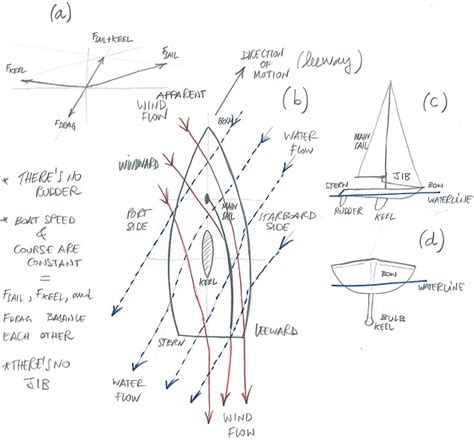 (a)
FSAIL+KEEL
FSAIL
FKEEL
FDRAG
DIRECTION
OF
MOTION
(leeway)
APPARENT
WIND
FLOW
(b)
BOW
WATER
FLOW
WINDWARD
PORT
SIDE
MAIN
SAIL
STARBOARD
SIDE
KEEL
STERN
LEEWARD
WATER
FLOW
WIND
FLOW
* THERE'S NO
RUDDER
* BOAT SPEED
&
COURSE ARE
CONSTANT
=
FSAIL, FKEEL, and
FDRAG BALANCE
EACH OTHER
* THERE'S NO
JIB
(c)
MAIN
SAIL
JIB
STERN
BOW
WATERLINE
RUDDER
KEEL
(d)
BOW
WATERLINE
BULB
KEEL